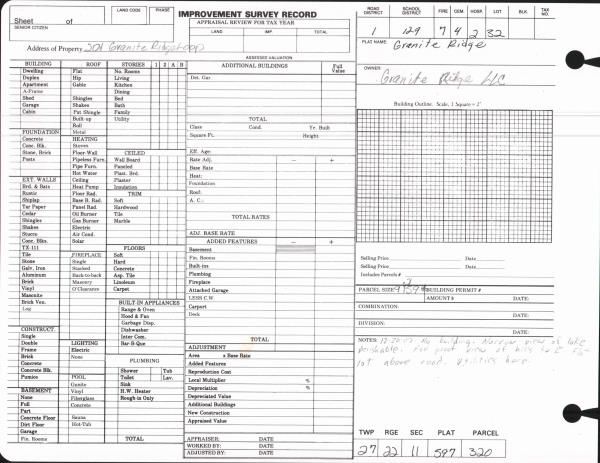 Sheet of
SENIOR CITIZEN
LAND CODE PHASE
IMPROVEMENT SURVEY RECORD
APPRAISAL REVIEW FOR TAX YEAR
LAND IMP. TOTAL
ROAD DISTRICT SCHOOL DISTRICT FIRE CEM. HOSP. LOT BLK. TAX NO.
1 129 7 4 2 32
PLAT NAME:
Granite Ridge
Address of Property
ASSESSED VALUATION
OWNER:
Granite Ridge LLC
BUILDING ROOF STORIES 1 2 A B
ADDITIONAL BUILDINGS Full Value
Dwelling Flat No. Rooms
Duplex Hip Living Det. Gar.
Apartment Gable Kitchen
A-Frame Dining
Shed Shingles Bed
Garage Shakes Bath
Cabin Pat Shingle Family
Built-up Utility
Roll
TOTAL
Building Outline: Scale, 1 Square = 2'
FOUNDATION Metal
Class Cond. Yr. Built
Concrete HEATING
Square Ft. Height
Conc. Blk. Stoves
Stone, Brick Floor-Wall CEILED
Eff. Age:
Posts Pipeless Furn. Wall Board
Rate Adj. – +
Pipe Furn. Paneled
Base Rate
Hot Water Plast. Brd.
Heat:
EXT. WALLS Ceiling Plaster
Foundation
Brd. & Bats Heat Pump Insulation
Roof:
Rustic Floor Rad. TRIM
A. C.:
Shiplap Base B. Rad. Soft
Tar Paper Panel Rad. Hardwood
Cedar Oil Burner Tile
TOTAL RATES
Shingles Gas Burner Marble
Shakes Electric
ADJ. BASE RATE
Stucco Air Cond.
ADDED FEATURES – +
Conc. Blks. Solar FLOORS
Basement
TX-111 Soft
Fin. Rooms
Tile FIREPLACE Hard
Built-ins
Stone Single Concrete
Plumbing
Galv. Iron Stacked Asp. Tile
Fireplace
Aluminum Back-to-back Linoleum
Attached Garage
Brick Masonry Carpet
LESS C.W.
Vinyl O'Clearance
Carport
Masonite BUILT-IN APPLIANCES
Deck
Brick Ven. Range & Oven
Log Hood & Fan
Garbage Disp.
Dishwasher
CONSTRUCT. Inter Com.
TOTAL
Single Bar-B-Que
Double LIGHTING
ADJUSTMENT
Frame Electric PLUMBING
Area x Base Rate
Brick None
Added Features
Concrete Shower Tub
Reproduction Cost
Concrete Blk. Toilet Lav.
Local Multiplier %
Pumice POOL Sink
Depreciation %
Gunite H.W. Heater
Depreciated Value
BASEMENT Vinyl Rough-in Only
Additional Buildings
None Fiberglass
New Construction
Full Concrete
Appraised Value
Part
Concrete Floor Sauna
Dirt Floor Hot-Tub
Garage
Fin. Rooms TOTAL
APPRAISER: DATE
WORKED BY: DATE
ADJUSTED BY: DATE
Selling Price DATE:
Selling Price DATE:
Includes Parcels #
PARCEL SIZE BUILDING PERMIT #
AMOUNT $ DATE:
COMBINATION:
DATE:
DIVISION:
DATE:
NOTES: No building. Narrow view of lake
lot above road. Utilities here.
TWP RGE SEC PLAT PARCEL
27 22 11 597 320